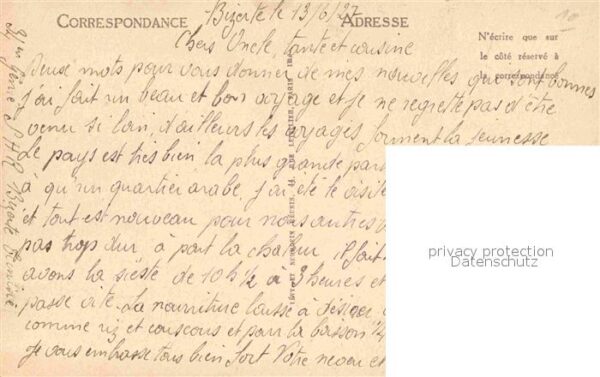 CORRESPONDANCE
ADRESSE
N'écrire que sur
le côté réservé à
la correspondance
Bizerte le 13/6/27
Chers Oncle, tante et cousine
Deux mots pour vous donner de mes nouvelles que sont bonnes
j'ai fait un beau et bon voyage et je ne regrette pas d'être
venu si loin, d'ailleurs les voyages forment la jeunesse
le pays est très bien la plus grande par
à qu'un quartier arabe, j'ai été le visite
et tout est nouveau pour nous autres
pas trop dur à part la chaleur, il fait
avons la sieste de 10h ½ à 3 heures et
passe vite. La nourriture laisse à désirer
comme riz et couscous et pour la boisson ¼
Je vous embrasse tous bien fort Votre neveu et
LEVY ET NEURDEIN RÉUNIS, 44, RUE LETELLIER, PARIS
Bizerte Tunisie
privacy protection
Datenschutz